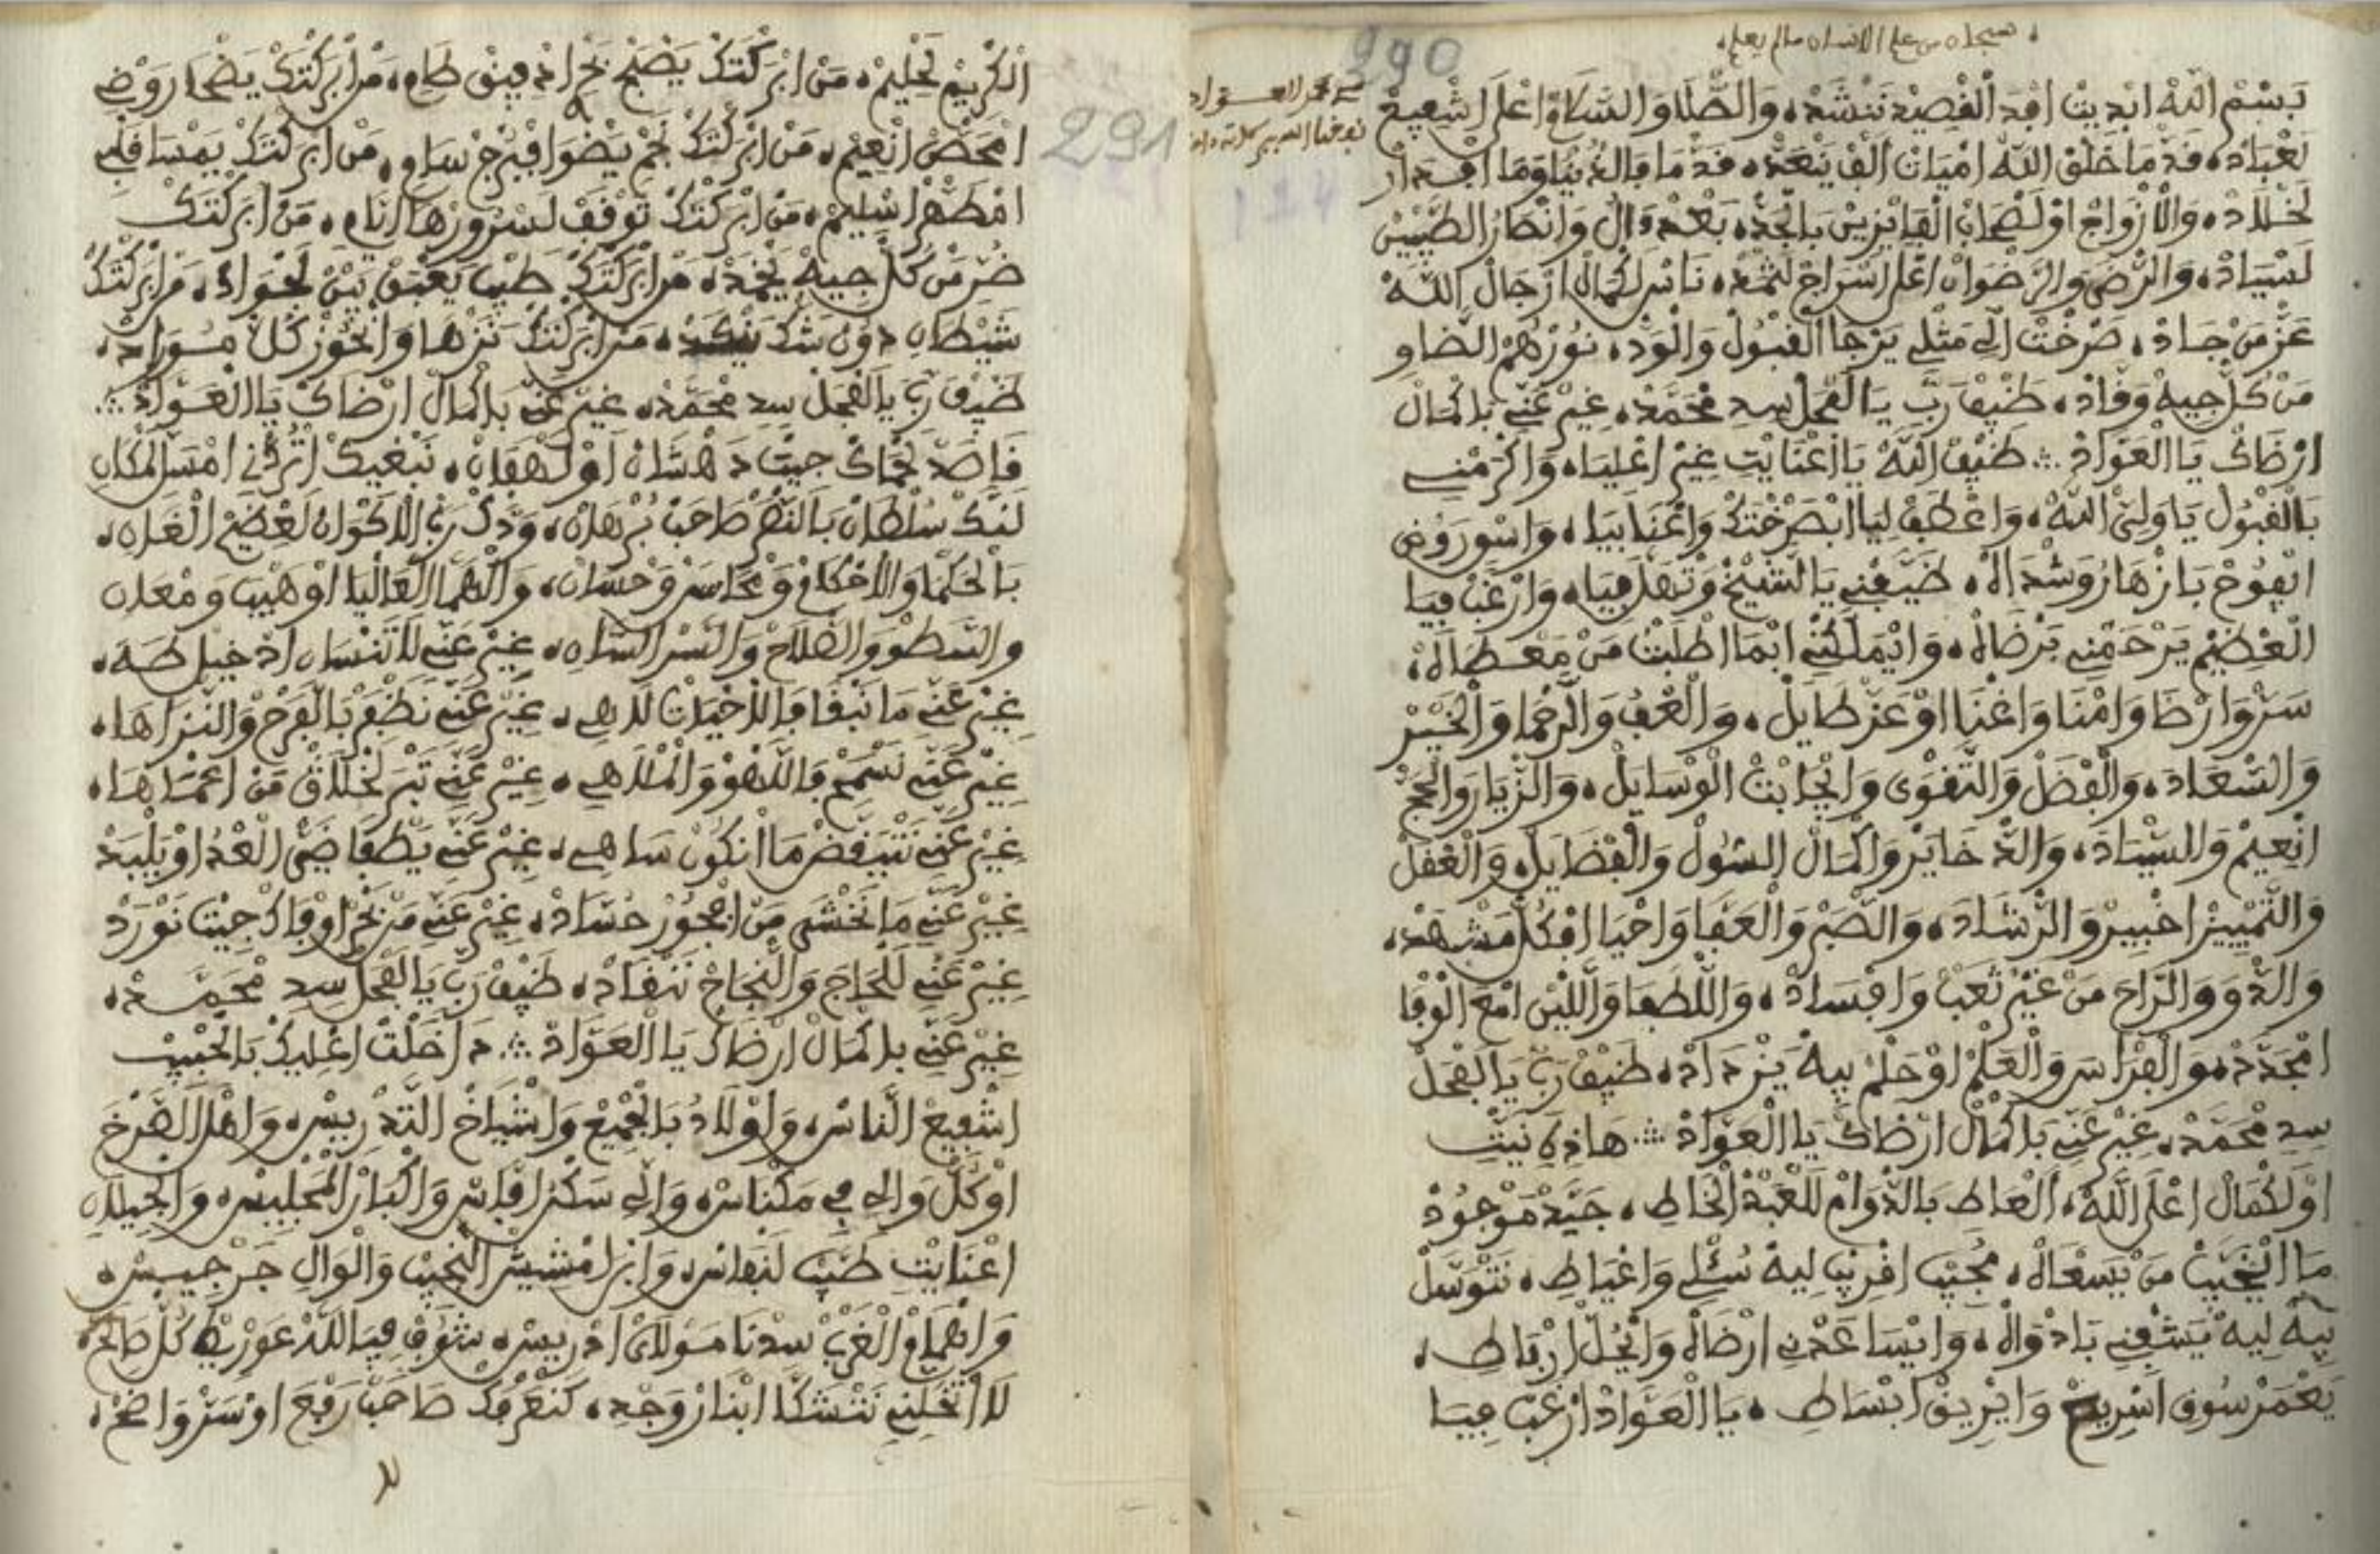 سبحان من علم الانسان ما لم يعلم
290
بسم الله ابديت افذ القصيد ننشد، والصلا والسلام اعلى اشفيع
لعباد، قد ما خلق الله اميات الف ينعد، قد ما فالدنيا وما افدار
لخلاد، والازواج او لصحاب الفايزين بالجد، بعد وال وانصار الطيبين
لسياد، والرضى والرضوان اعلى اسراج لثمد، ناس لكمال ارجال الله
عز من جاد، صرخت الي مثلي يرجا القبول والود، نورهم الضاو
من كل جيه وفاد، ضيف رب يا الفحل سد محمد، غير عني بكمال
ارضاك يا العواد ∴ ضيف الله يا اعنايت غير اعليا، واكرمني
بالقبول يا ولي الله، واعطف ليا ابصرختك واعنا بيا، واسور روض
ايفوح بازهار وشذاه، ضيفني يا الشيخ وتهل فيا، وارغب فيا
العظيم يرحمني برضاه، وايملكني ابما اطلبت من معطاه،
سر وارضا وامنا واغنا او عز طايل، والعف والرحما والخير
والسعاد، والفضل والتقوى وانجابت الوسايل، والزيار والحج
انعيم والسياد، والذخاير واكمال السول والفضايل، والعقل
والتمييز اخبير والرشاد، والصبر والعفا واحيا افكل مشهد،
والذو والراح من غير تعب وافساد، واللطفا واللين امع الوفا
امجدد، والفراس والعلم او حلم بيه يزداد، ضيف رب يا الفحل
سد محمد، غير عني بكمال ارضاك يا العواد ∴ هاذه نيت
او لكمال اعلى الله، العاط بالدوام للعبد الخاط، جيد موجود
ما ايخيب من يسعاه، مجيب اقريب ليه سئلي واعياط، نتوسل
بيه ليه يشفني بادواه، وايساعدني ارضاه وانحل ارباط،
يعمر سوق اسريح وايريق ابساط، يا العواد ارغب فيا
291
الكريم لحليم، من ابركتك يصبح بحر اد فيق طام، من ابركتك يضحا روض
امحضن انعيم، من ابركتك نجم يضوا فبرج سام، من ابركتك يمسا قلب
امطهر اسليم، من ابركتك توقف لسرورها ايام، من ابركتك
ضر من كل جيه يخمد، من ابركتك طيب يعبق بين لجواد، من ابركتك
شيطان دون شك ينكد، من ابركتك نزها وانحوز كل مسوراد،
ضيف رب يا الفحل سد محمد، غير عني بكمال ارضاك يا العواد ∴
قاصد لحماك جيت دهشان او لهفان، نبغيك اتركني امسل لمكان
لنك سلطان بالنصر صاحب برهان، ودك رب الاكوان لعضيم الغان،
بالحكما والاحكام ومحاسن وحسان، والهما العاليا او هيب ومعان
والسطو والصلاح والسر السان، غير عني لا تنسان ادخيل طه،
غير عني ما نبقا فالاخيات لاهي، غير عني نظفر بالفرح والنزاها،
غير عني نسمح فاللهو والملاهي، غير عني تبر لخلاق من اعماها،
غير عني نتيقض ما انكون ساهي، غير عني يطفا ضي العد او يلبد
غير عني ما نخشى من افجور حساد، غير عني من بحر اوفاك جيت نورد
غير عني للحاج والنجاح ننقاد، ضيف رب يا الفحل سد محمد،
غير عني بكمال ارضاك يا العواد ∴ دخلت اعليك بالحبيب
اشفيع الناس، واولاد بالجميع واشياخ التدريس، واهل الصرخ
او كل والي في مكناس، والي سكن افاس والكبار المجليس، والجيلان
اعنايت طبيب لنفاس، وابن امشيش النجيب والوال جرجيس،
وانهمام الغرب سدنا مولاي ادريس، شوف فيا الله عورت كل صالح،
لا تخليني نتشكا ابنار وجد، كنعرفك صاحب رفع او سر واضح،
لا